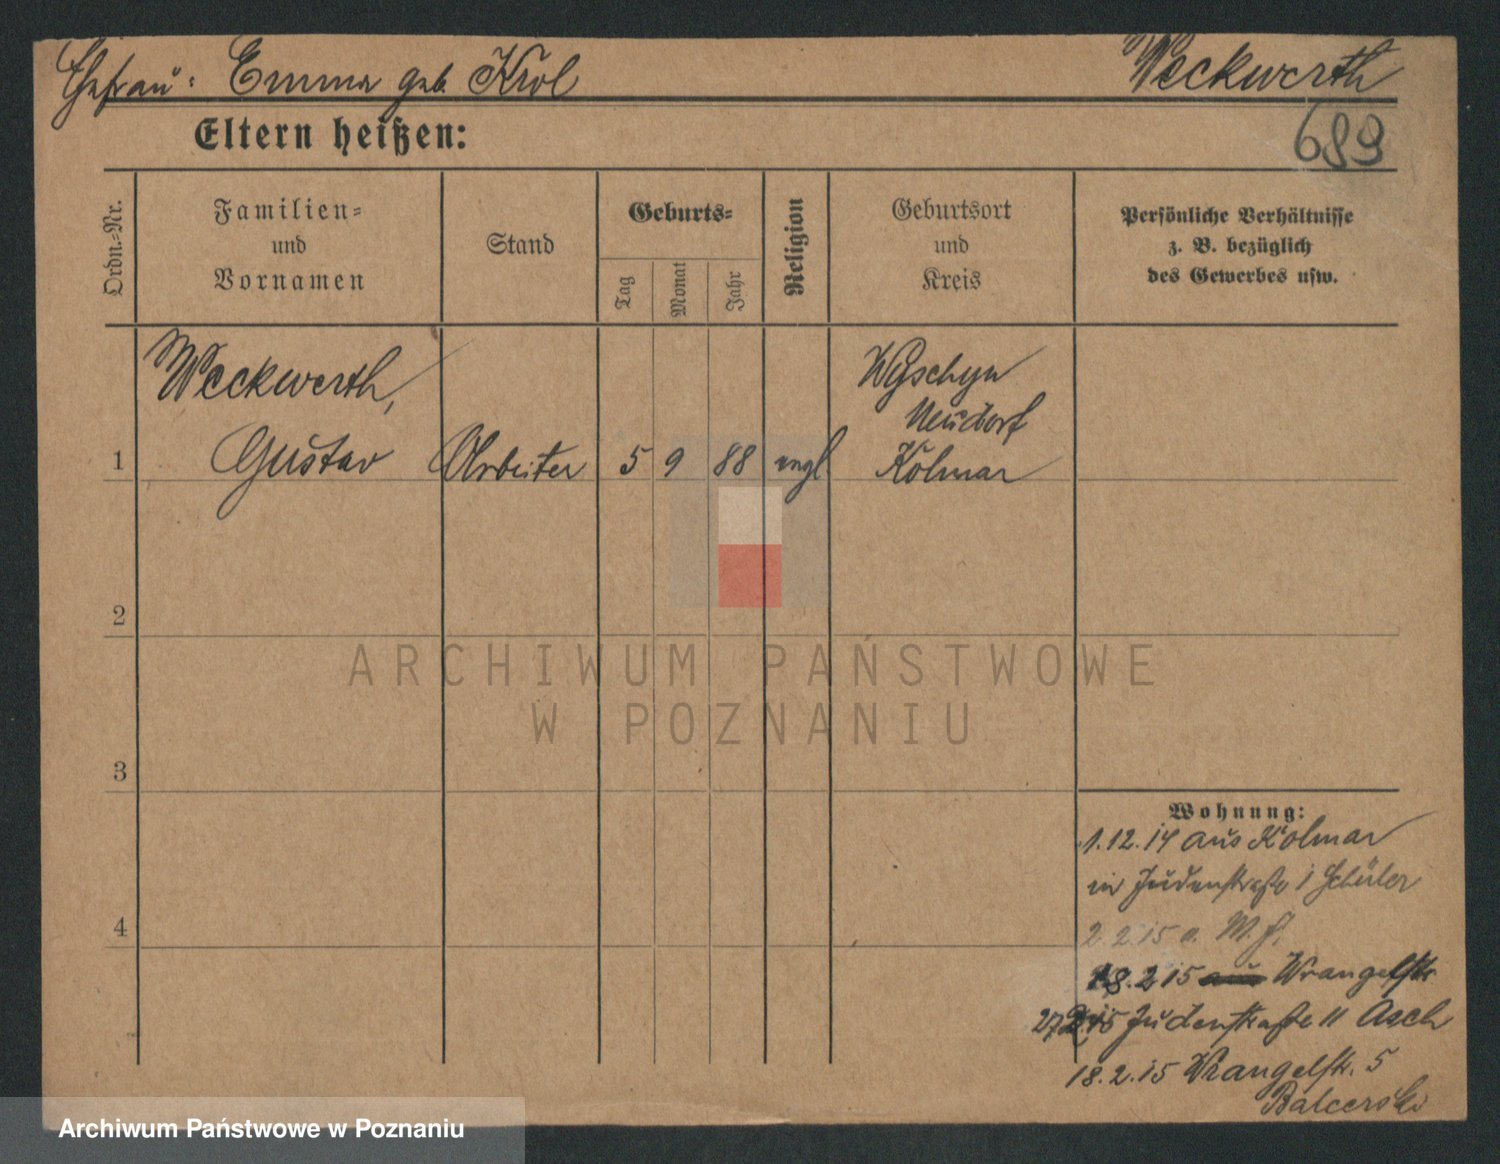 Ehefrau: Emma geb. Krol
Weckwerth
Eltern heißen:
689
Ordn.-Nr.
Familien-
und
Vornamen
Stand
Geburts-
Tag
Monat
Jahr
Religion
Geburtsort
und
Kreis
Persönliche Verhältnisse
z. B. bezüglich
des Gewerbes usw.
1
Weckwerth,
Gustav
Arbeiter
5
9
88
evgl.
Wyschyn
Neudorf
Kolmar
2
3
4
ARCHIWUM PAŃSTWOWE
W POZNANIU
Wohnung:
1.12.14 aus Kolmar
in Judenstraße 1 Schüler
2.2.15 n. W.
18.2.15 Wrangelstr.
Judenstraße 11 Asch
18.2.15 Wrangelstr. 5
Balcerski
Archiwum Państwowe w Poznaniu